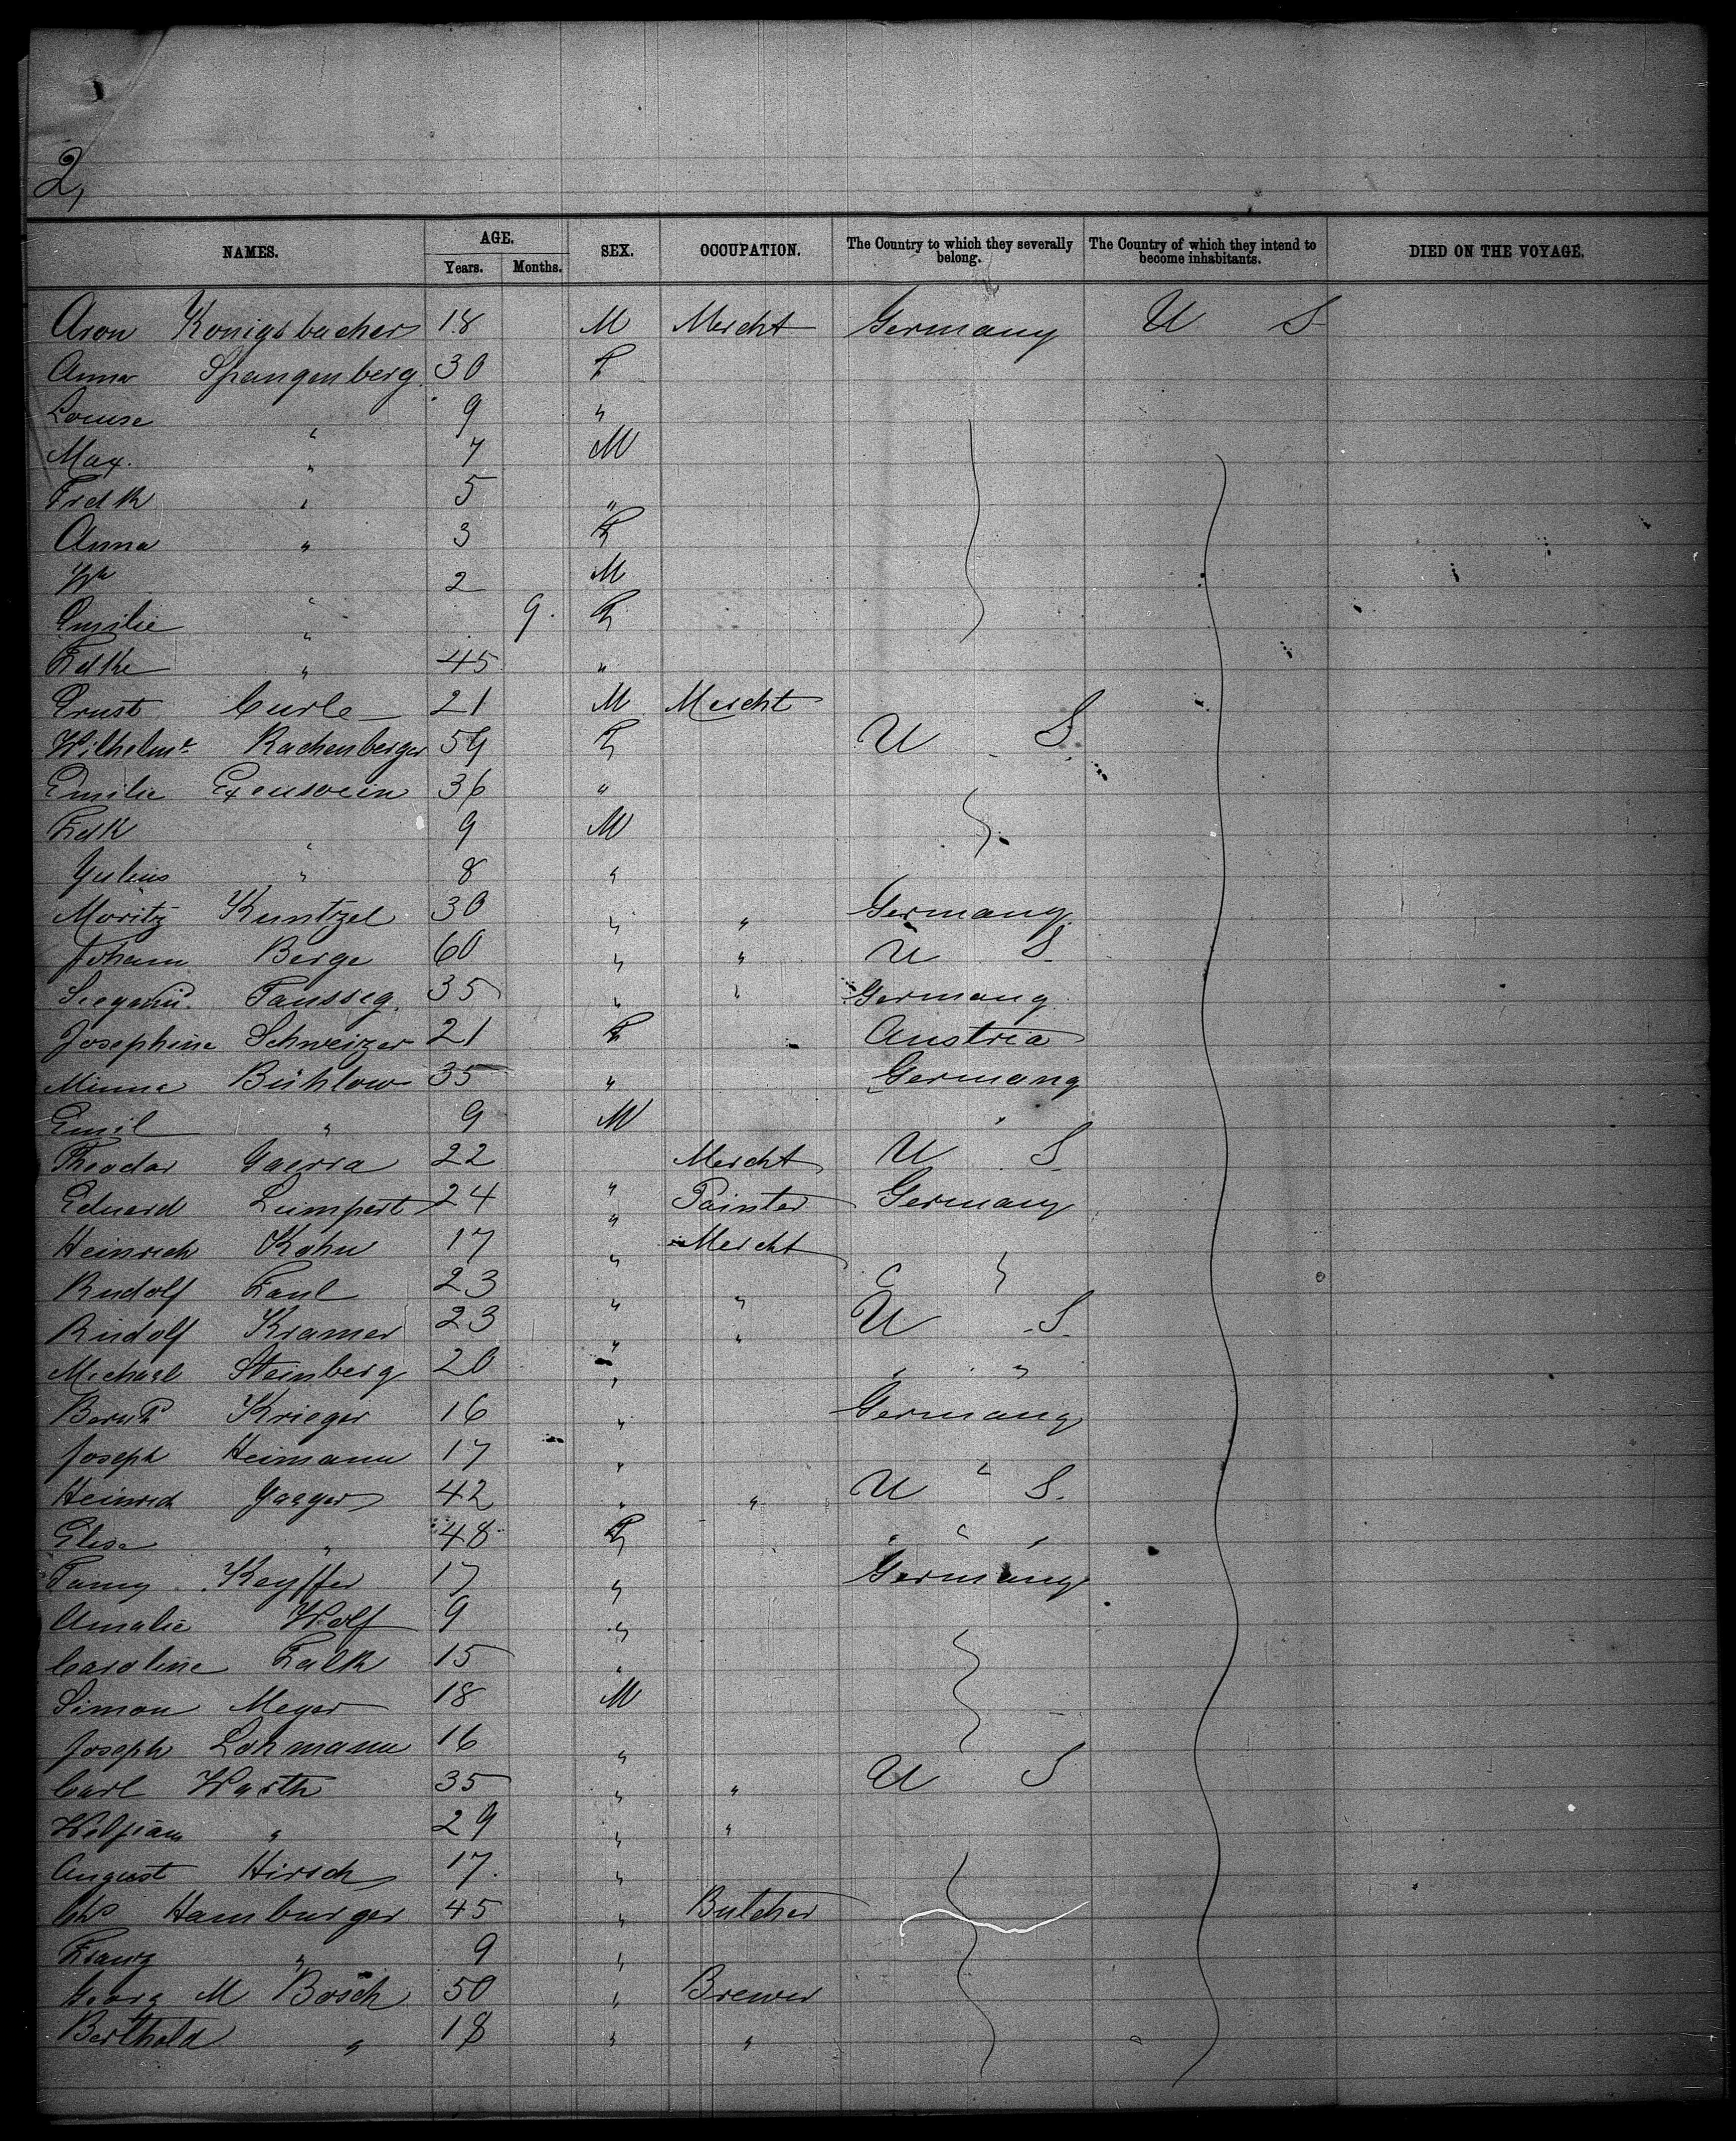 2,
NAMES. AGE. SEX. OCCUPATION. The Country to which they severally belong. The Country of which they intend to become inhabitants. DIED ON THE VOYAGE.
Years. Months.
Aron Konigsbacher 18 M Mercht Germany U S
Anna Spangenberg 30 F
Louise " 9 "
Max. " 7 M
Fredk " 5 "
Anna " 3 F
Wm " 2 M
Emilie " 9. F
Fdke " 45 "
Ernst Curle 21 M Mercht
Wilhelme Rachenberger 59 F U S
Emilie Exenswein 36 "
Fdk " 9 M
Julius " 8 "
Moritz Kuntzel 30 " " Germany
Johann Berge 60 " " U S
Taussig 35 " " Germany
Josephine Schweizer 21 F Austria
Minna Bühlow 35 " Germany
Emil " 9 M "
Theodor 22 " Mercht U S
Eduard Limpert 24 " Painter Germany
Heinrich Kohn 17 " Mercht
Rudolf Faul 23 " " " "
Rudolf Kramer 23 " " U S
Michael Steinberg 20 " " "
Bernh Krieger 16 " Germany
Joseph Heimann 17 " "
Heinrich Jaeger 42 " " U S
Elise " 48 F " " "
Fanny Keyffer 17 " Germany
Amalie Wolf 9 "
Caroline Falk 15 "
Simon Meyer 18 M
Joseph Lohmann 16 "
Carl Warth 35 " " U S
" 29 " "
August Hirsch 17. "
Chs Hamburger 45 " Butcher
Franz " 9 "
Georg M Bosch 50 " Brewer
Berthold " 18 " "